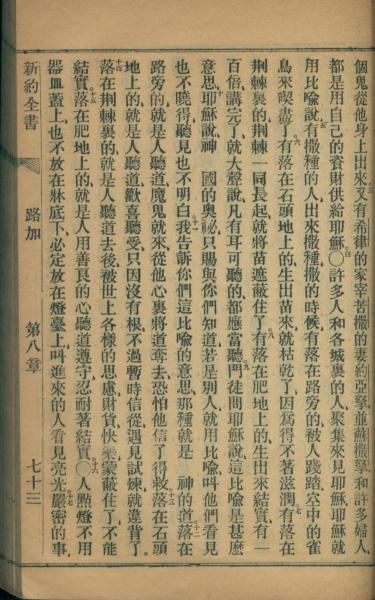 個鬼從他身上出來三又有希律的家宰苦撒的妻約亞拏並蘇撒拏和許多婦人
都是用自己的資財供給耶穌〇四許多人和各城裏的人聚集來見耶穌耶穌就
用比喻說五有撒種的人出來撒種撒的時候有落在路旁的被人踐踏空中的雀
鳥來喫盡了六有落在石頭地上的生出苗來就枯乾了因爲得不著滋潤七有落在
荆棘裏的荆棘一同長起就將苗遮蔽住了八有落在肥地上的生出來結實有一
百倍講完了就大聲說凡有耳可聽的都應當聽九門徒問耶穌說這比喻是甚麼
意思十耶穌說神　國的奧祕只賜與你們知道若是別人就用比喻叫他們看見
也不曉得聽見也不明白十一我告訴你們這比喻的意思那種就是　神的道十二落在
路旁的就是人聽道魔鬼就來從他心裏將道奪去恐怕他信了得救十三落在石頭
地上的就是人聽道歡喜聽受只因沒有根不過暫時信從遇見試煉就違背了
十四落在荆棘裏的就是人聽道去後被世上各樣的思慮財貨快樂蒙蔽住了不能
結實十五落在肥地上的就是人用善良的心聽道遵守忍耐著結實〇十六人點燈不用
器皿蓋上也不放在牀底下必定放在燈臺上叫進來的人看見亮光十七嚴密的事
新約全書　路加　第八章　七十三